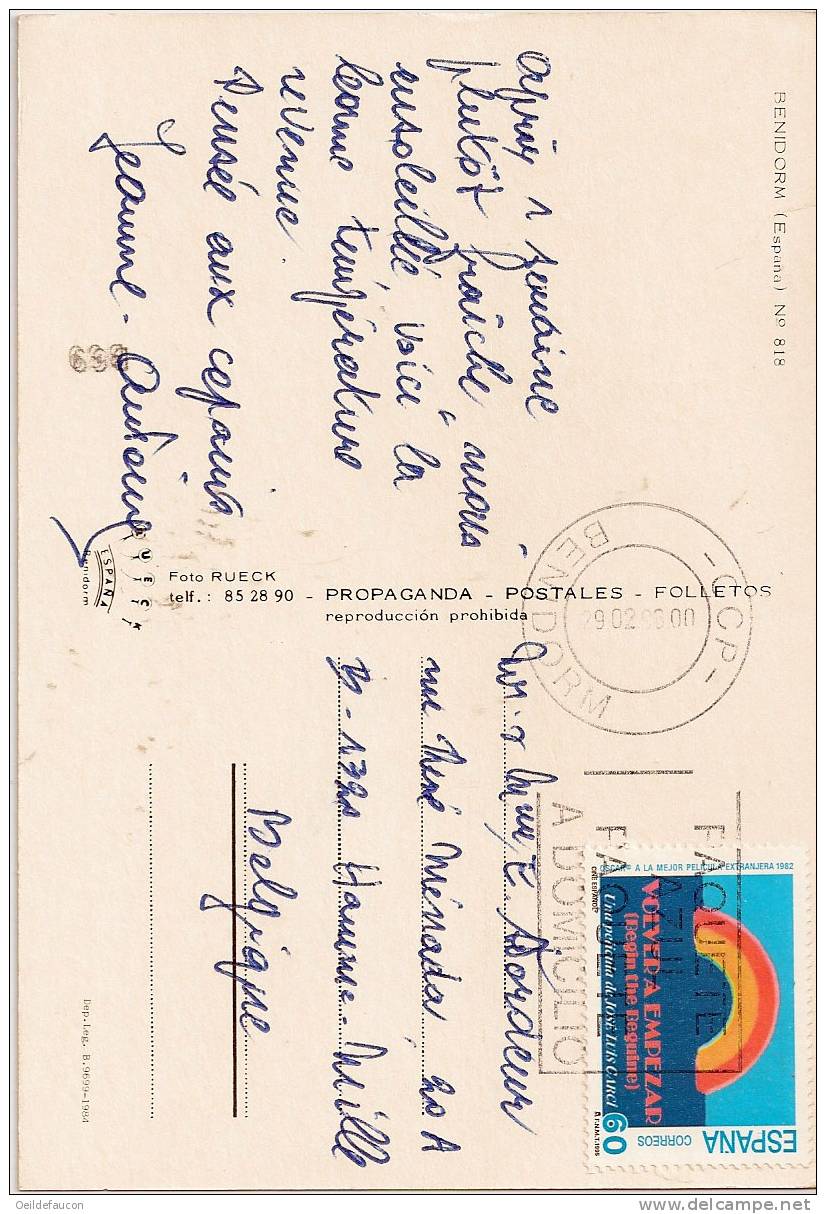 BENIDORM (España) Nº 818
Après 1 semaine
plutôt fraîche mais
ensoleillée voici la
bonne température
revenue.
Pensée aux copains
Jeanne - Antoine
699
RUECK
ESPAÑA
Benidorm
Foto RUECK
telf.: 85 28 90 - PROPAGANDA - POSTALES - FOLLETOS
reproducción prohibida
- CCP -
BENIDORM
29.02 00
Mr & Mme E. Dordeur
rue René Ménada 20 A
B-1320 Hamme-Mille
Belgique
Dep. Leg. B. 9699-1984
PAQUETE
AZUL
PAQUETE
A DOMICILIO
OSCAR® A LA MEJOR PELICULA EXTRANJERA 1982
CINE ESPAÑOL
VOLVER A EMPEZAR
(Begin the Beguine)
Una película de JOSÉ LUIS GARCI
60 CORREOS
ESPAÑA
F.N.M.T. 1995
Oeildefaucon
delcampe.net